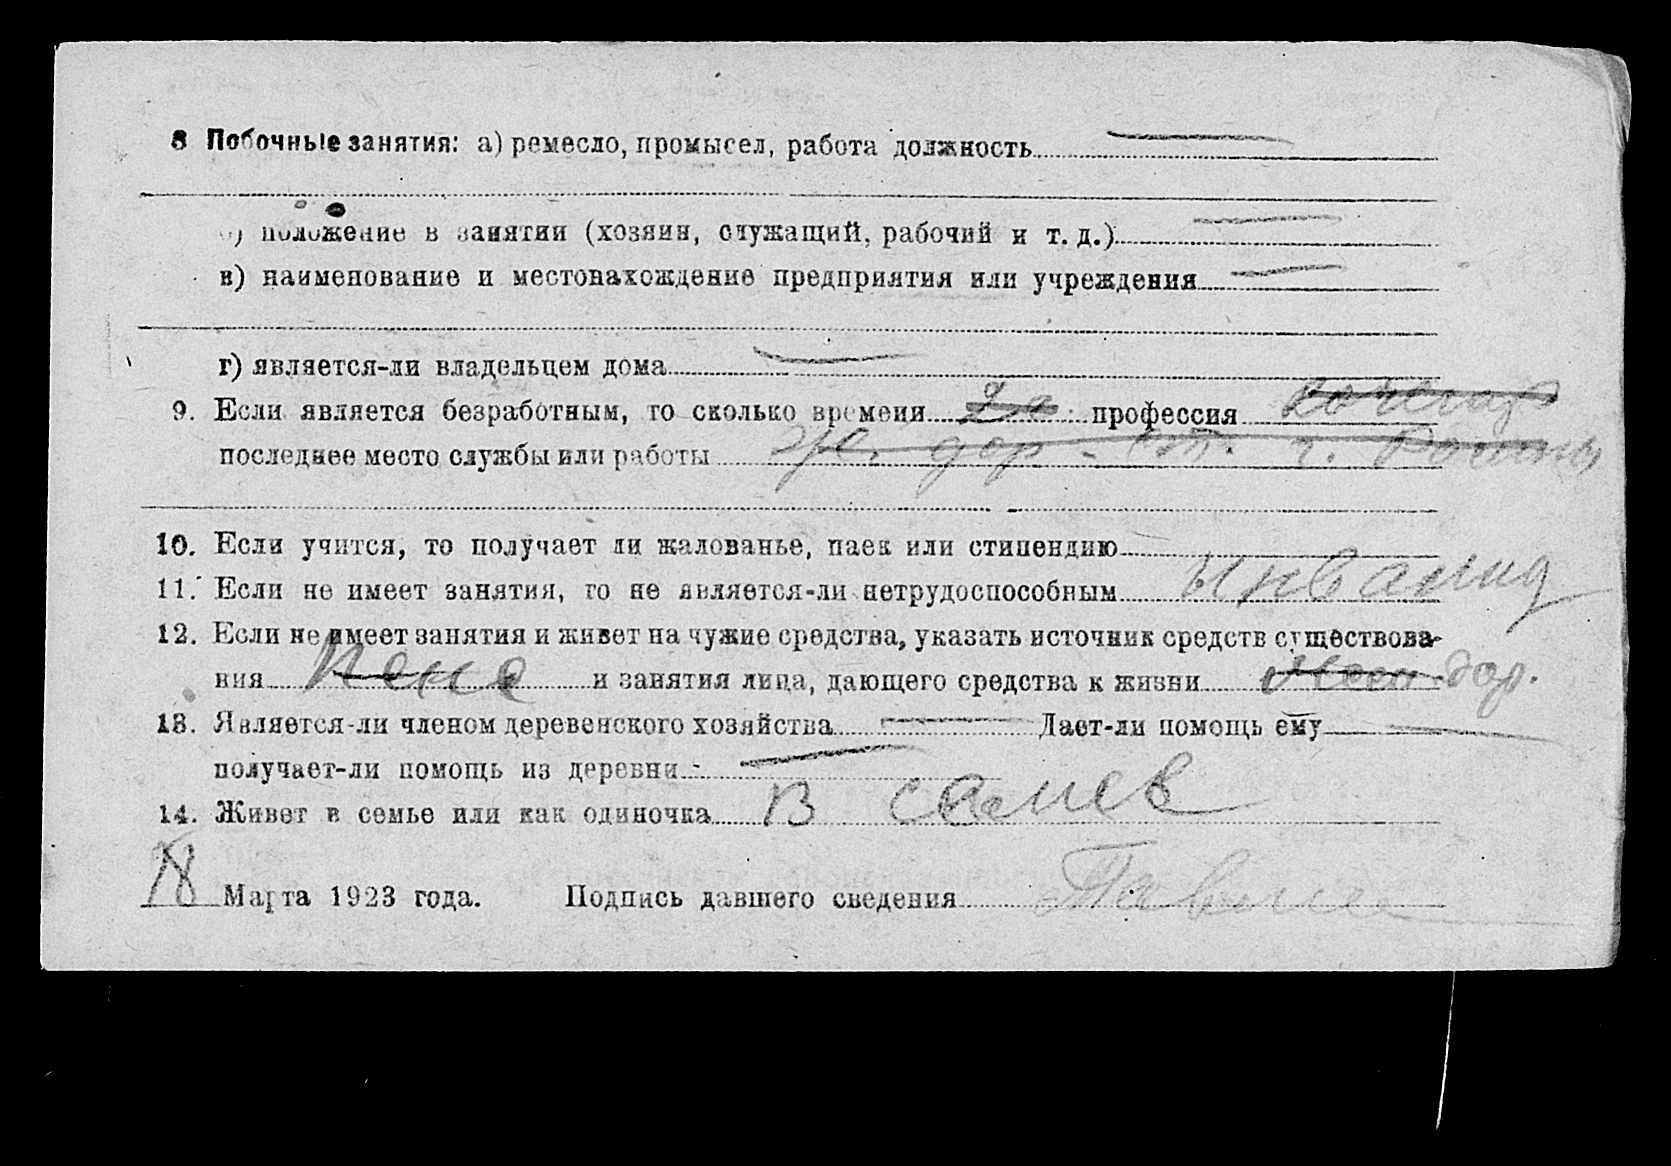 8 Побочные занятия: а) ремесло, промысел, работа должность
б) положение в занятии (хозяин, служащий, рабочий и т. д.)
в) наименование и местонахождение предприятия или учреждения
г) является-ли владельцем дома
9. Если является безработным, то сколько времени 2 г. профессия
последнее место службы или работы жел. дор. ст. г.
10. Если учится, то получает ли жалованье, паек или стипендию
11. Если не имеет занятия, то не является-ли нетрудоспособным Инвалид
12. Если не имеет занятия и живет на чужие средства, указать источник средств существова-
ния и занятия лица, дающего средства к жизни дор.
13. Является-ли членом деревенского хозяйства Дает-ли помощь ему
получает-ли помощь из деревни
14. Живет в семье или как одиночка В семье
18 Марта 1923 года. Подпись давшего сведения